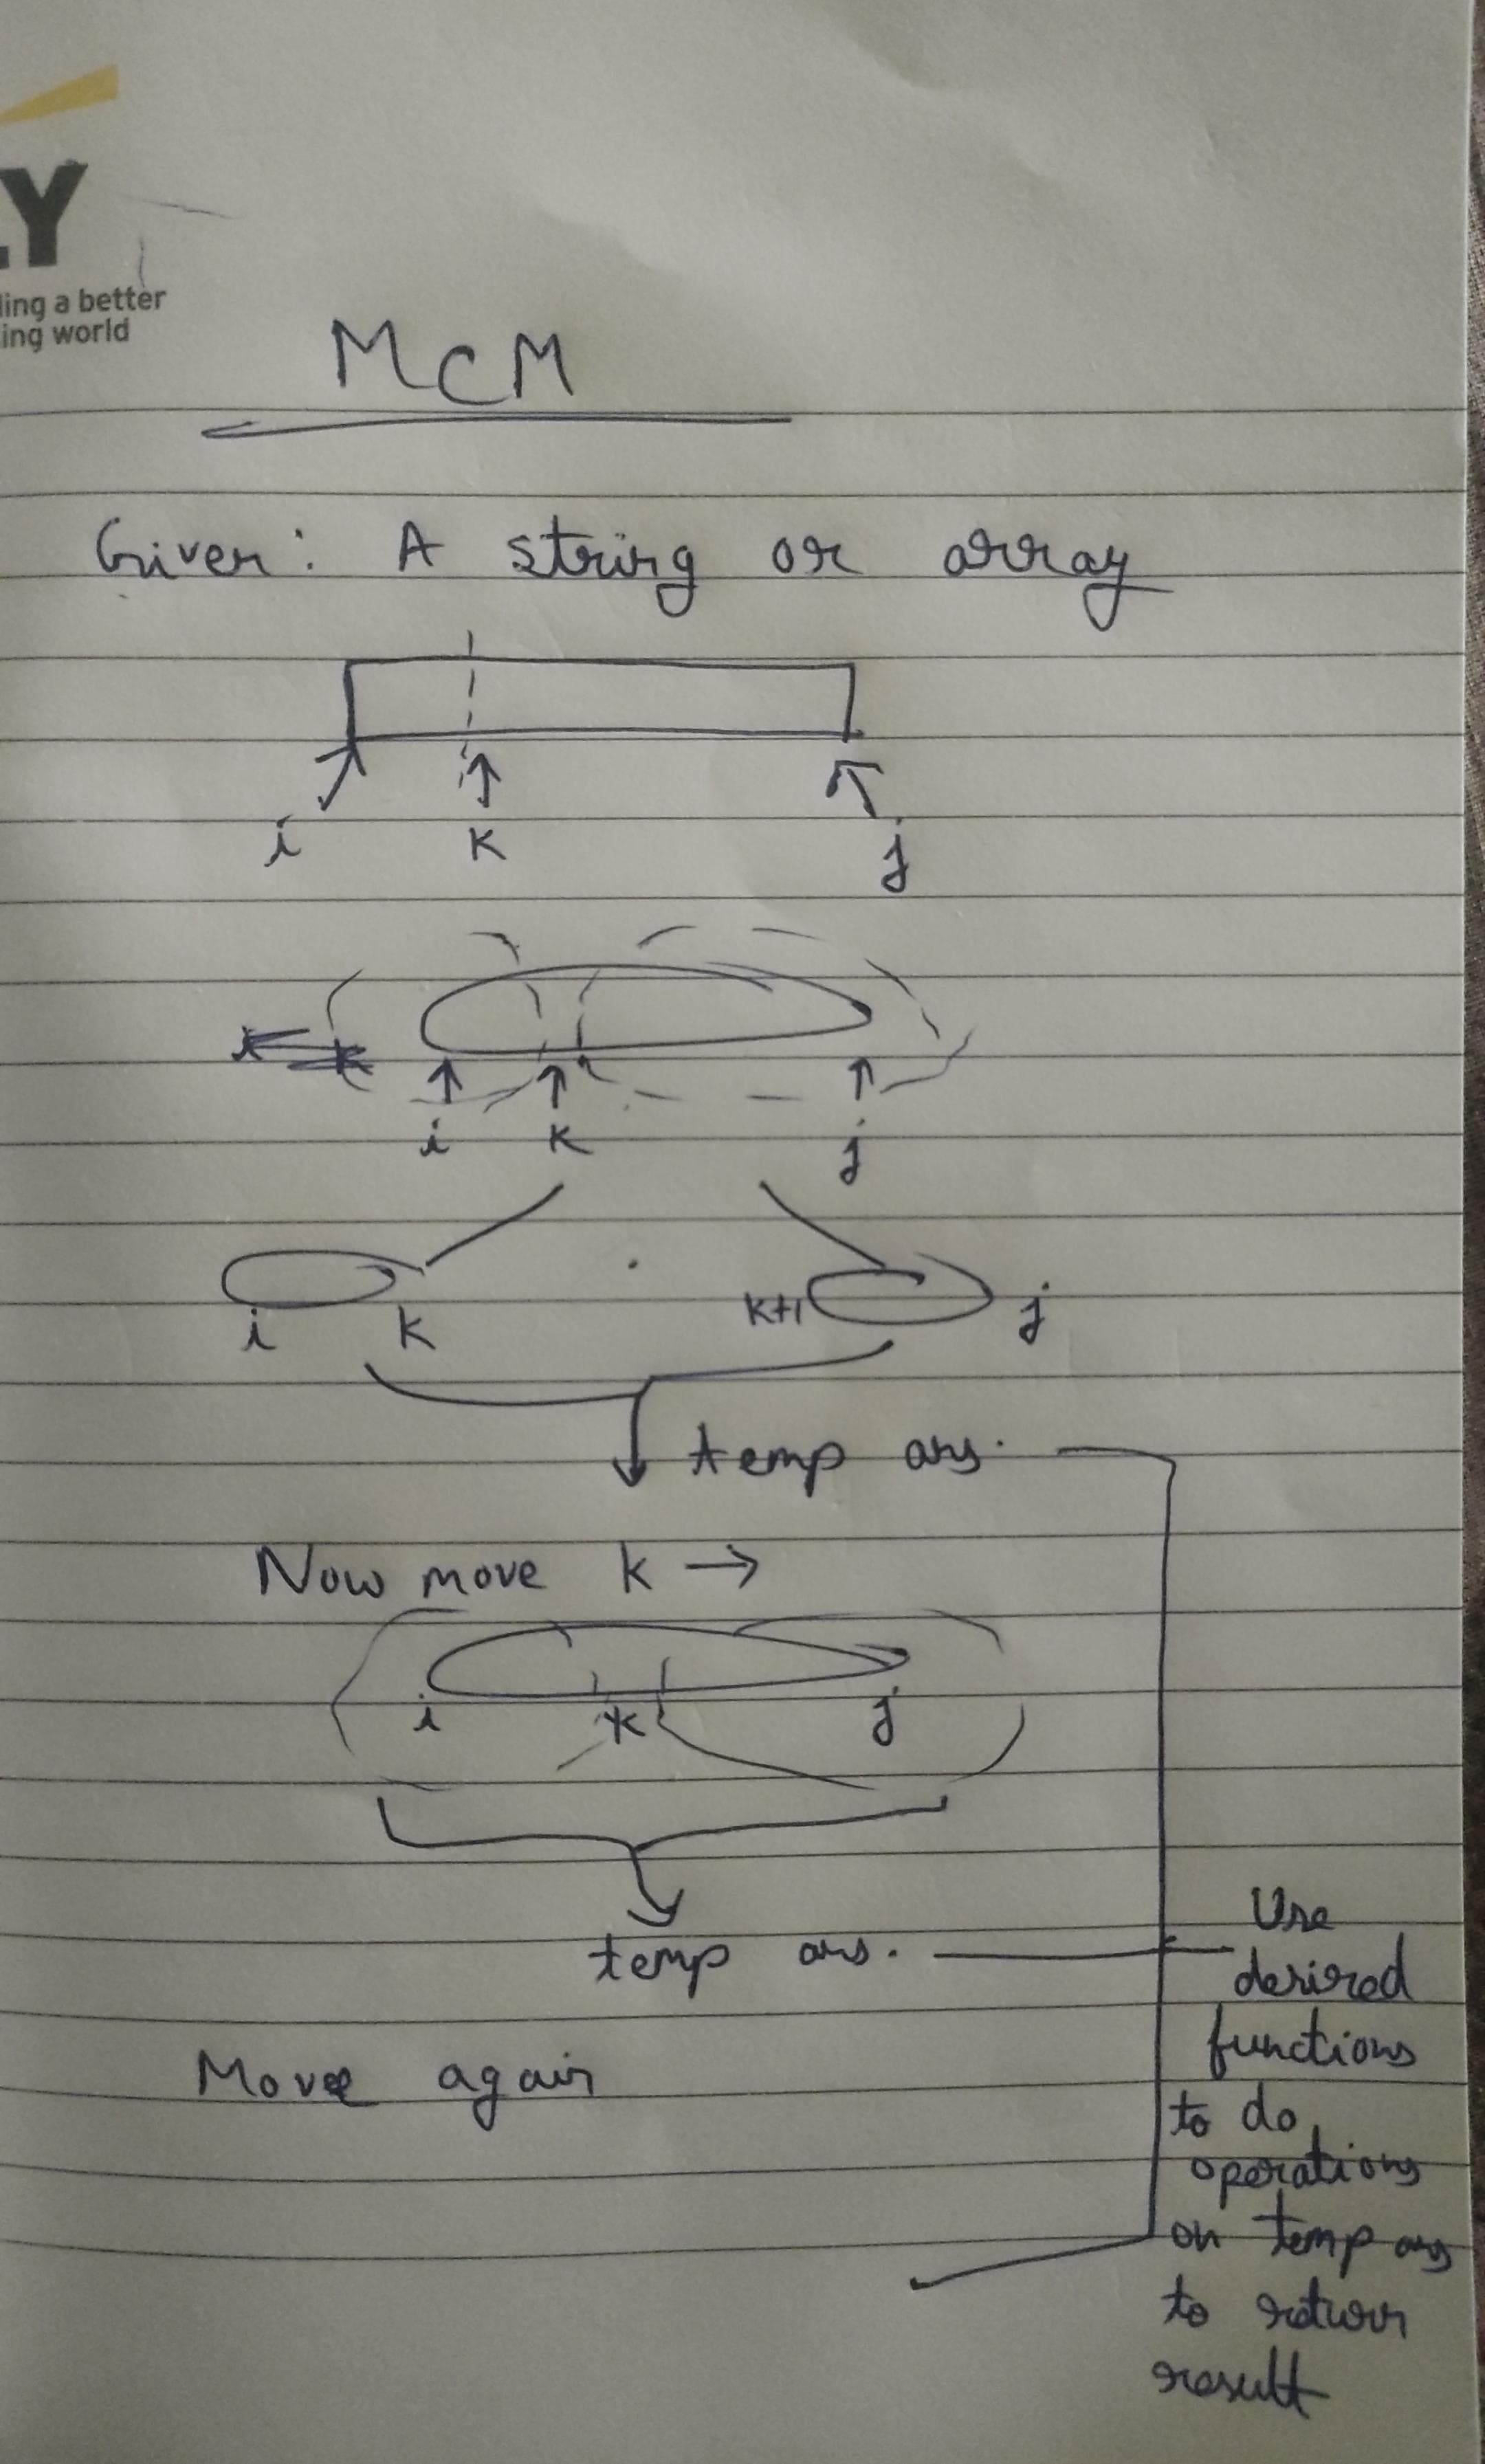 Y
ling a better
ing world
MCM
Given: A string or array
i k j
i k j
i k k+1 j
temp ans.
Now move k →
i k j
temp ans.
Move again
Use
desired
functions
to do
operations
on temp ans
to return
result